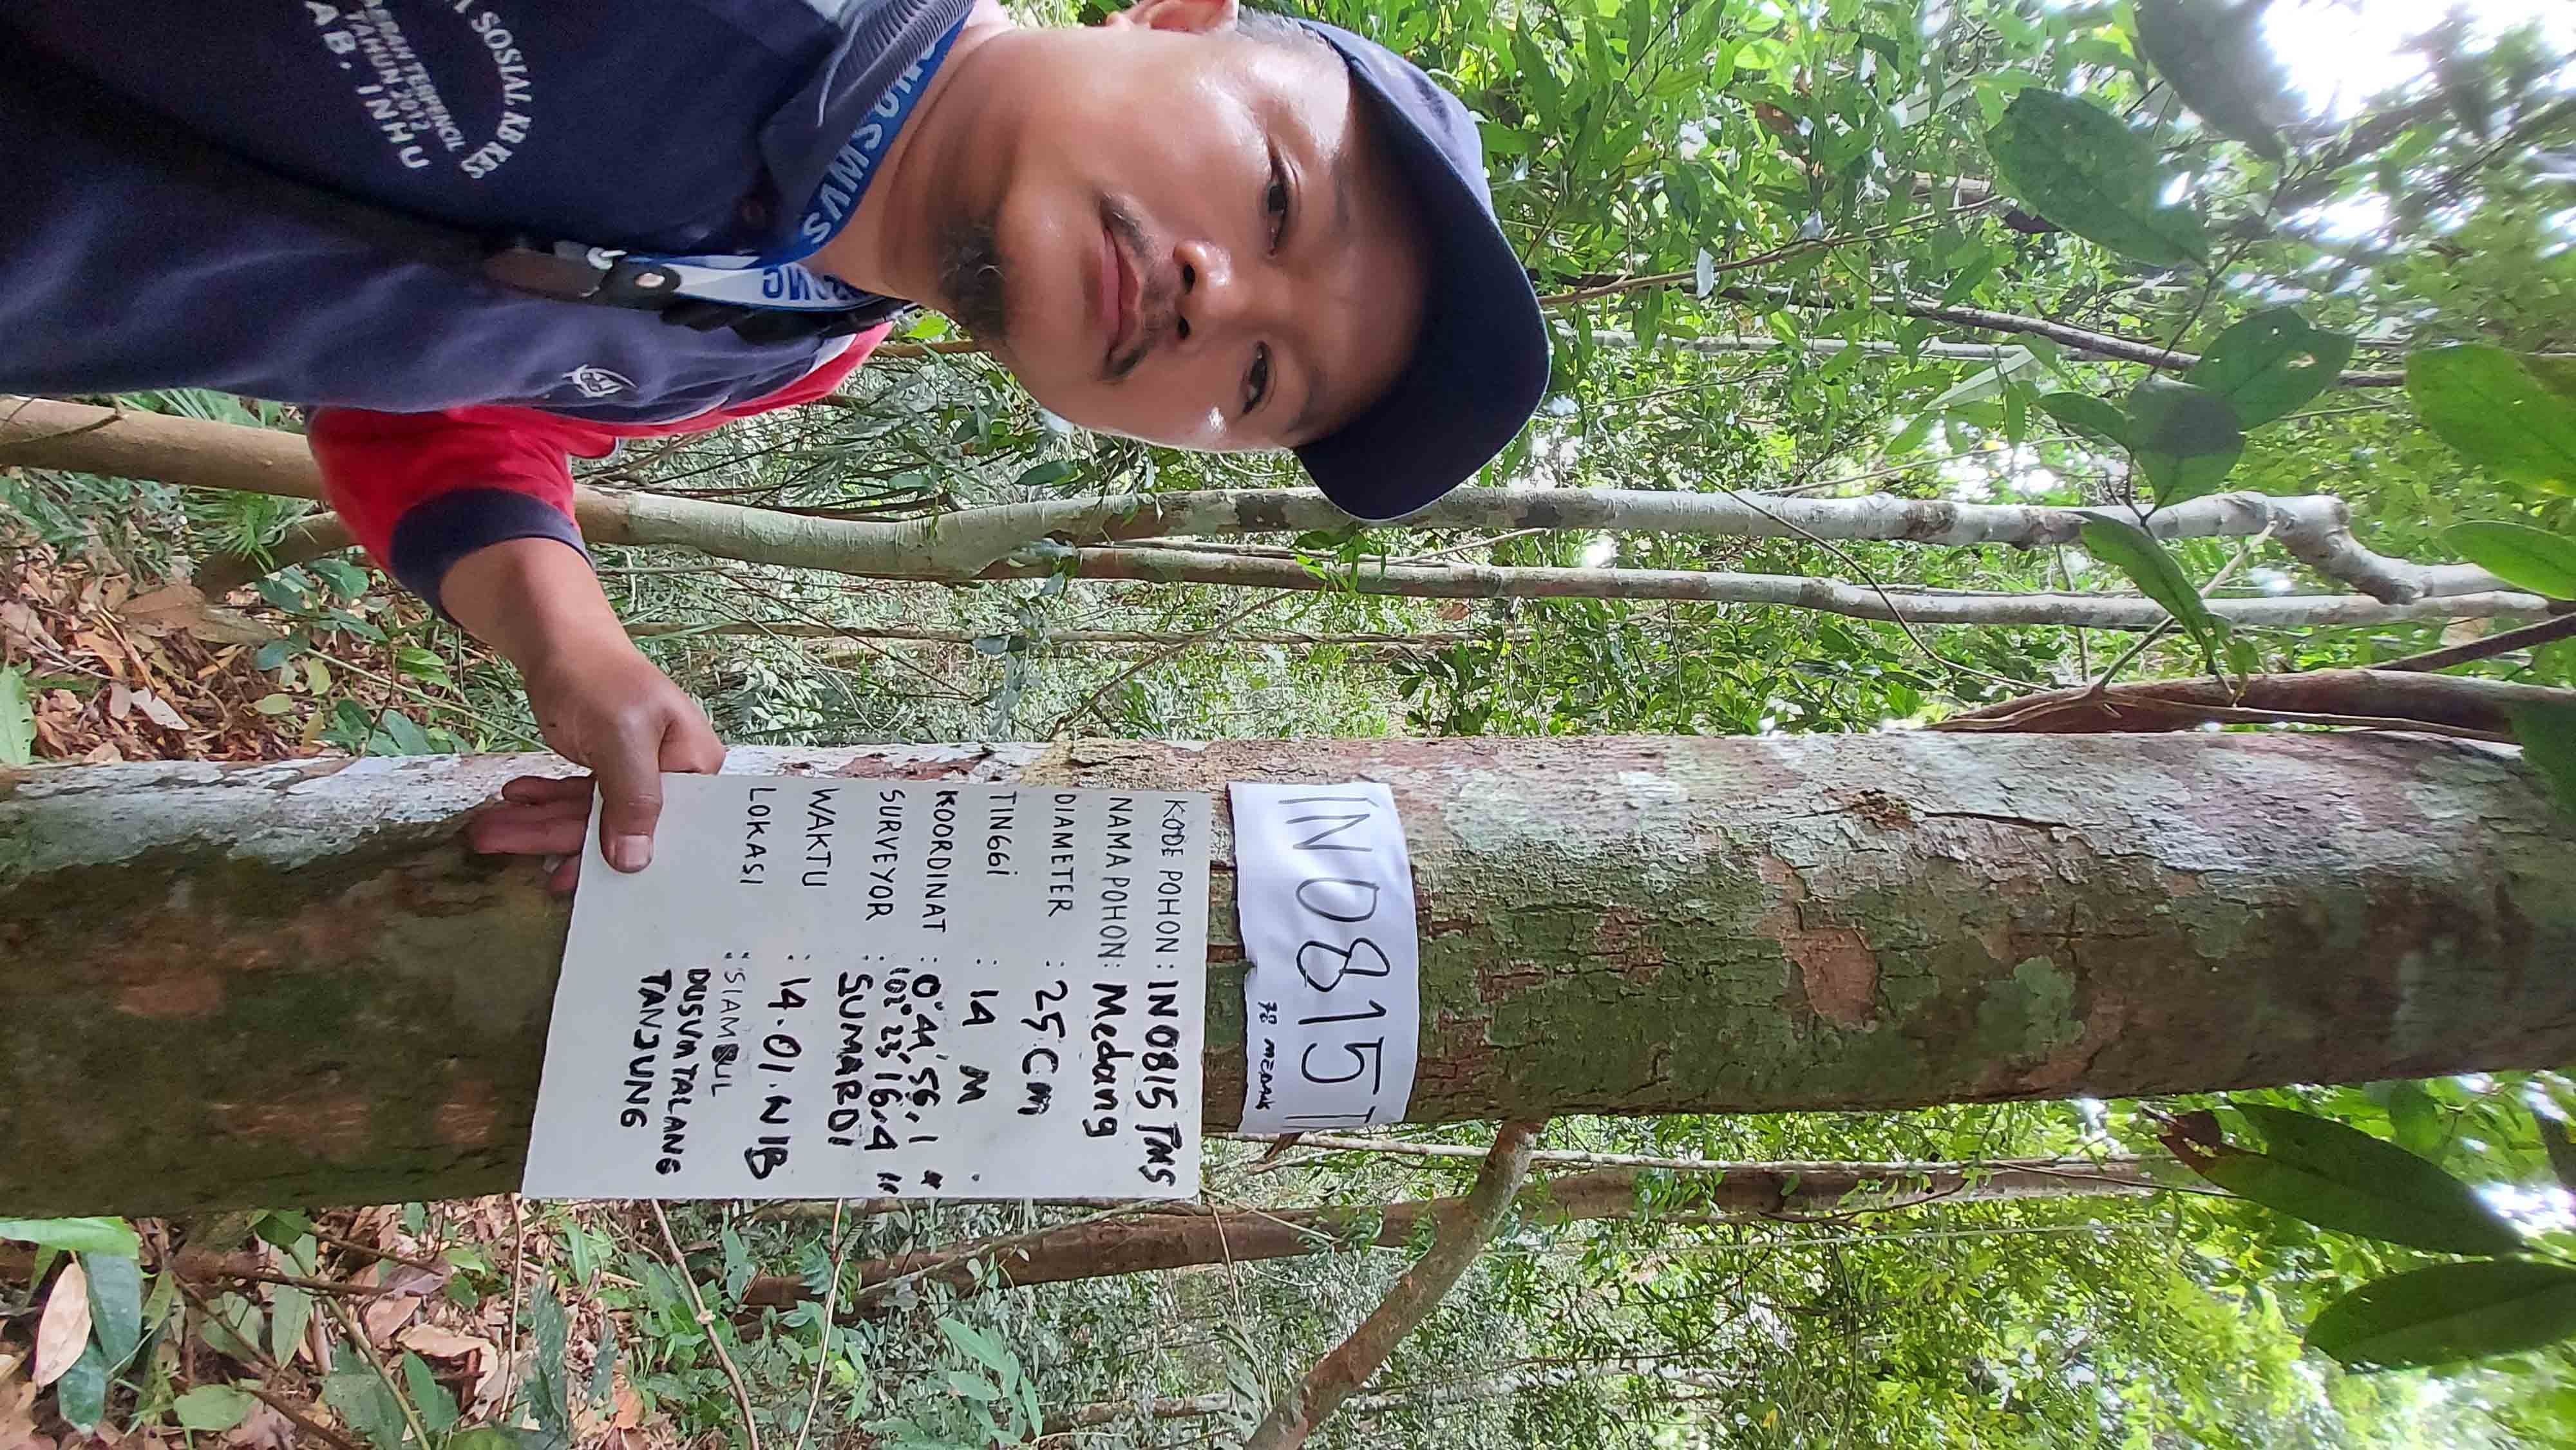 IN0815T
78 MEDANG
KODE POHON : IN0815 TMS
NAMA POHON : Medang
DIAMETER : 25 Cm
TINGGI : 14 M
KOORDINAT : 0° 44' 56,1 "
102° 23' 16,4 "
SURVEYOR : SUMARDI
WAKTU : 14.01.WIB
LOKASI : SIAMBUL
DUSUN TALANG
TANJUNG
SAMSONG
CIVIC
SOSIAL KB KES
ERAH TERPENCIL
TAHUN 2012
AB. INHU